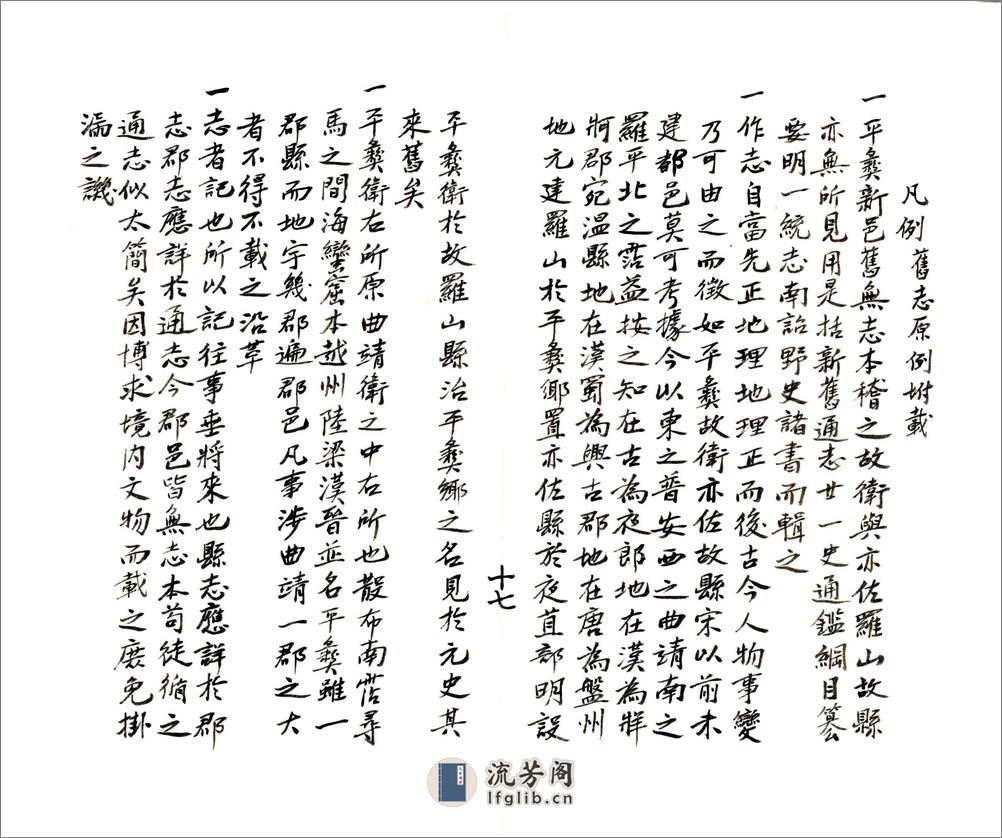 凡例舊志原例坿載
一平彝新邑舊無志本稽之故衛與亦佐羅山故縣
亦無所見用是括新舊通志廿一史通鑑綱目纂
要明一統志南詔野史諸書而輯之
一作志自當先正地理地理正而後古今人物事變
乃可由之而徵如平彝故衛亦佐故縣宋以前未
建都邑莫可考據今以東之普安西之曲靖南之
羅平北之霑益按之知在古為夜郎地在漢為牂
牁郡宛溫縣地在漢蜀為興古郡地在唐為盤州
地元建羅山於平彝鄉置亦佐縣於夜苴部明設
十七
平彝衛於故羅山縣治平彝鄉之名見於元史其
來舊矣
一平彝衛右所原曲靖衛之中右所也散布南霑尋
馬之間海巒窑本越州陸梁漢晉並名平彝雖一
郡縣而地字幾郡遍郡邑凡事涉曲靖一郡之大
者不得不載之沿革
一志者記也所以記往事垂將來也縣志應詳於郡
志郡志應詳於通志今郡邑皆無志本苟徒循之
通志似太簡矣因博求境内文物而載之庶免掛
漏之譏
流芳阁
lfglib.cn